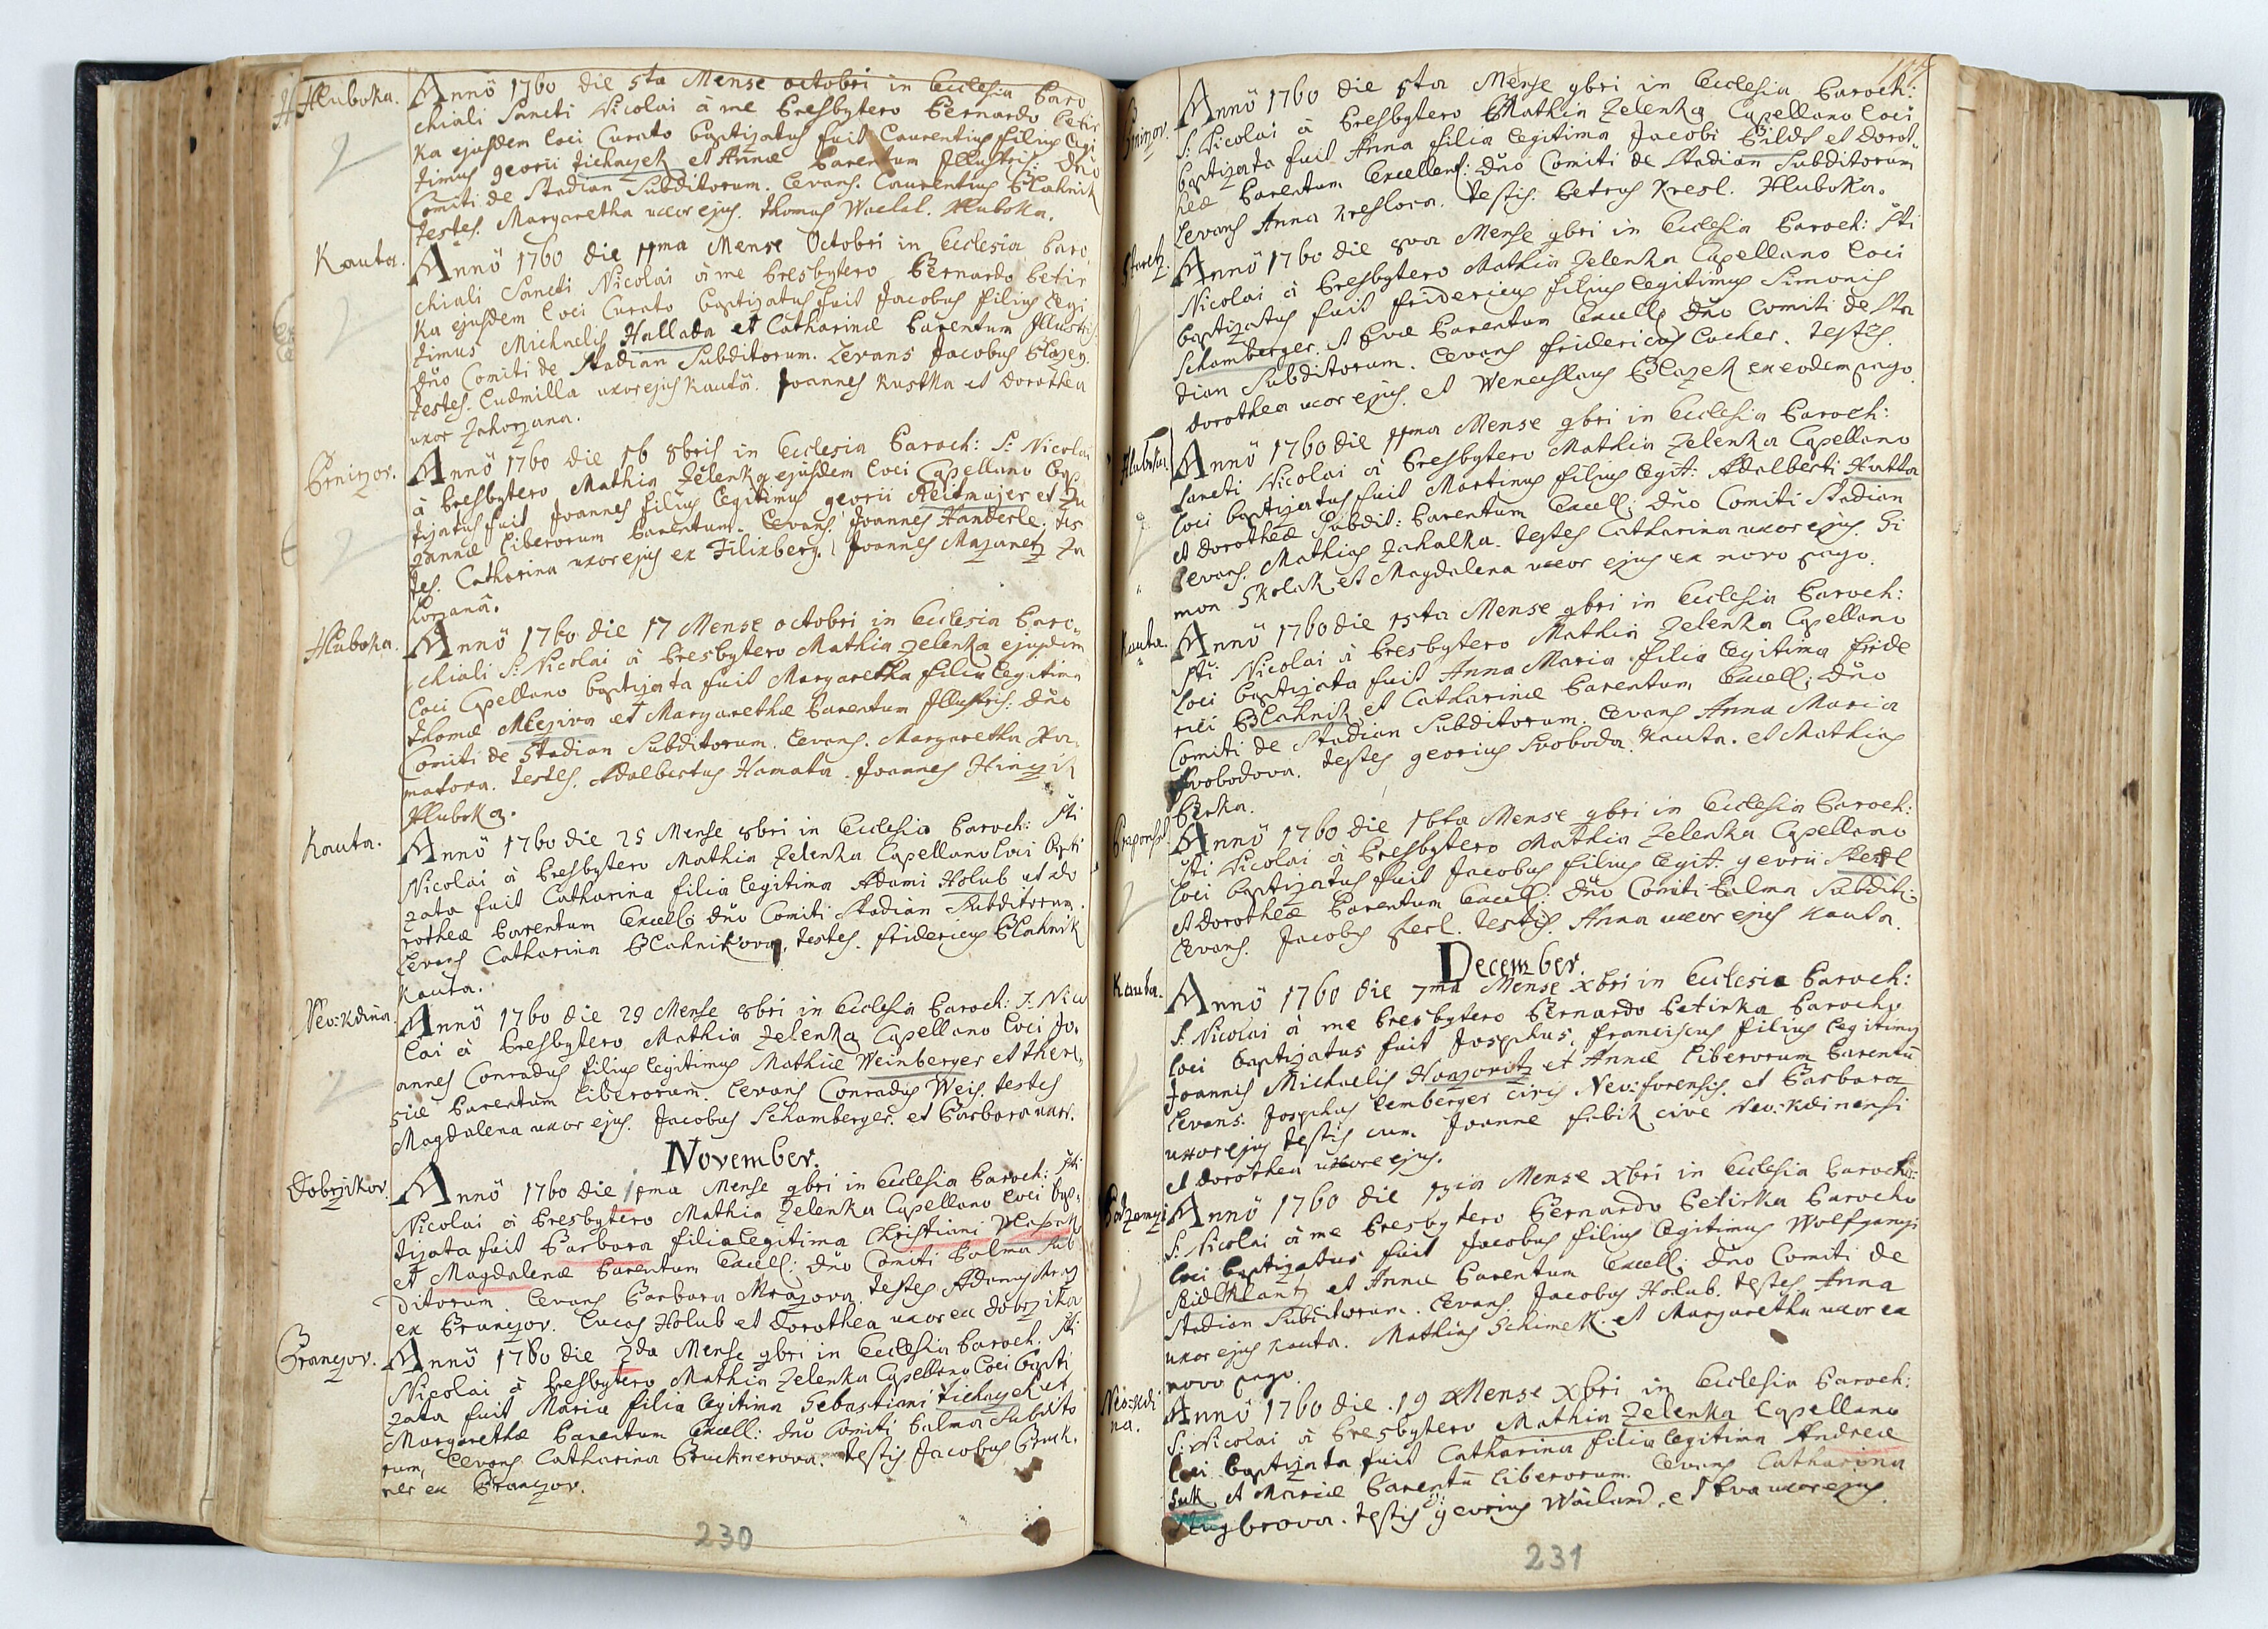 Hluboka.
Annö 1760 die 5ta Mense octobri in Ecclesia Paro
chiali Sancti Nicolai à me Presbytero Bernardo Petir
ka ejusdem loci Curato baptizatus fuit Laurentius filius legi
timus georii Tichaczek et Annæ Parentum Illustris: Dnö
Comiti de Stadian Subditorum. Levans. Laurentius Blahnik
testes. Margaretha uxor ejus. thomas Waclal. Hluboka.
Kauta.
Annö 1760 die 11ma Mense Octobri in Ecclesia Paro
chiali Sancti Nicolai à me Presbytero Bernardo Petir
ka ejusdem loci Curato baptizatus fuit Jacobus filius legi
timus Michaelis Hallada et Catharinæ Parentum Illustris:
Dnö Comiti de Stadian Subditorum. Levans Jacobus Blazey.
testes. Ludmilla uxor ejus Kautä. Joannes Kustka et Dorothea
uxor Zahorzana.
Prnizov.
Annö 1760 die 16 8bris in Ecclesia Paroch: S: Nicolai
à Presbytero Mathia Zelenka ejusdem loci Capellano bap
tizatus fuit Joannes filius legitimus georii Reitmajer et Zu
zannæ liberorum Parentum. Levans. Joannes Handerle. tes
tes. Catharina uxor ejus ex Filixberg. Joannes Mazanetz Za
korzanä.
Hluboka.
Annö 1760 die 17 Mense octobri in Ecclesia Paro
chiali S: Nicolai à Presbytero Mathia Zelenka ejusdem
loci Capellano baptizata fuit Margaretha filia legitima
thomæ Mlegiva et Margarethæ Parentum Illustris: Dnö
Comiti de Stadian Subditorum. Levans. Margaretha Ha
matova. testes. Adalbertus Hamata. Joannes Hinczik
Hluboka.
Kauta.
Annö 1760 die 25 Mense 8bri in Ecclesia Paroch: Sti
Nicolai à Presbytero Mathia Zelenka Capellano loci bapti
zata fuit Catharina filia legitima Adami Holub et Do
rotheæ Parentum Excell: Dnö Comiti Stadian Subditorum.
Levans Catharina Blahnikova. testes. fridericus Blahnik
Kauta.
Neo:Kdina.
Annö 1760 die 29 Mense 8bri in Ecclesia Paroch: S: Nico
lai à Presbytero Mathia Zelenka Capellano loci Jo.
annes Conradus filius legitimus Mathiæ Weinberger et there
siæ Parentum liberorum. Levans Conradus Weis. testes
Magdalena uxor ejus. Jacobus Schamberger. et Barbara uxor.
November.
Dobrzikov.
Annö 1760 die 1ma Mense 9bri in Ecclesia Paroch: Sti
Nicolai à Presbytero Mathia Zelenka Capellano loci bap
tizata fuit Barbara filia legitima Christiani
et Magdalenæ Parentum Excell: Dnö Comiti Palma Sub
ditorum. Levans Barbara Mrazova. testes Adamus Mraz
ex Pranczov. Lucas Holub et Dorothea uxor ex Dobrzikov
Pranczov.
Annö 1760 die 2da Mense 9bri in Ecclesia Paroch. Sti
Nicolai à Presbytero Mathia Zelenka Capellano loci bapti
zata fuit Maria filia legitima Sebastiani tichaczek et
Margarethæ Parentum Excell: Dnö Comiti Palma Subdito
rum, Levans Catharina Brucknerova. testis Jacobus Bruck.
ner ex Pranczov.
230
Prnizov.
Annö 1760 die 5ta Mense 9bri in Ecclesia Paroch:
S: Nicolai à Presbytero Mathia Zelenka Capellano loci
baptizata fuit Anna filia legitima Jacobi Bildt et Dorot
heæ Parentum Excellent: Dnö Comiti de Stadian Subditorum
Levans Anna Kreslova. testis. Petrus Kresl. Hluboka.
Staretz.
Annö 1760 die 8va Mense 9bri in Ecclesia Paroch: Sti
Nicolai à Presbytero Mathia Zelenka Capellano loci
baptizatus fuit fridericus filius legitimus Simonis
Schamberger. et Evæ Parentum Excell: Dnö Comiti de Sta
dian Subditorum. Levans fridericus Locher. testis.
Dorothea uxor ejus. et Wenceslaus Blazek ex eodem pago.
Hluboka.
Annö 1760 die 11ma Mense 9bri in Ecclesia Paroch:
Sancti Nicolai à Presbytero Mathia Zelenka Capellano
loci baptizatus fuit Martinus filius legit: Adalberti Hutta
et Dorotheæ Subdit: Parentum Excell: Dnö Comiti Stadian
Levans. Mathias Zahalka. testes Catharina uxor ejus. Si
mon Skolak et Magdalena uxor ejus ex novo pago.
Kauta.
Annö 1760 die 15ta Mense 9bri in Ecclesia Paroch:
Sti Nicolai à Presbytero Mathia Zelenka Capellano
loci baptizata fuit Anna Maria filia legitima fride
rici Blahnik et Catharinæ Parentum Excell: Dnö
Comiti de Stadian Subditorum. Levans Anna Maria
Svobodova. testes georius Svoboda. Kauta. et Mathias
Perka.
Annö 1760 die 16ta Mense 9bri in Ecclesia Paroch:
Sti Nicolai à Presbytero Mathia Zelenka Capellano
loci baptizatus fuit Jacobus filius legit: georii
et Dorotheæ Parentum Excell: Dnö Comiti Palma Subdit:
Levans. Jacobus ferl. testis. Anna uxor ejus Kauta.
December.
Kauta.
Annö 1760 die 7ma Mense Xbri in Ecclesia Paroch:
S: Nicolai à me Presbytero Bernardo Petirka Parocho
loci baptizatus fuit Josephus, franciscus filius legitimus
Joannis Michaelis Honzovitz et Annæ liberorum Parentü
Levans. Josephus Lemberger civis Neo:forensis. et Barbara
uxor ejus testis cum Joanne febik cive Neo:Kdinensi
et Dorothea uxore ejus.
Annö 1760 die 13tia Mense Xbri in Ecclesia Parochi:
S: Nicolai à me Presbytero Bernardo Petirka Parocho
loci baptizatus fuit Jacobus filius legitimus Wolfgangi
Reidlklantz et Annæ Parentum Excell: Dnö Comiti de
Stadian Subditorum. Levans. Jacobus Holub. testes Anna
uxor ejus Kauta. Mathias Schimek. et Margaretha uxor ex
novo pago.
Neo:Kdi
na.
Annö 1760 die 19 Mense Xbri in Ecclesia Paroch:
S: Nicolai à Presbytero Mathia Zelenka Capellano
loci baptizata fuit Catharina filia legitima Andreæ
Suk et Mariæ Parentü liberorum. Levans Catharina
testis georius Wailand, et Eva uxor ejus.
231